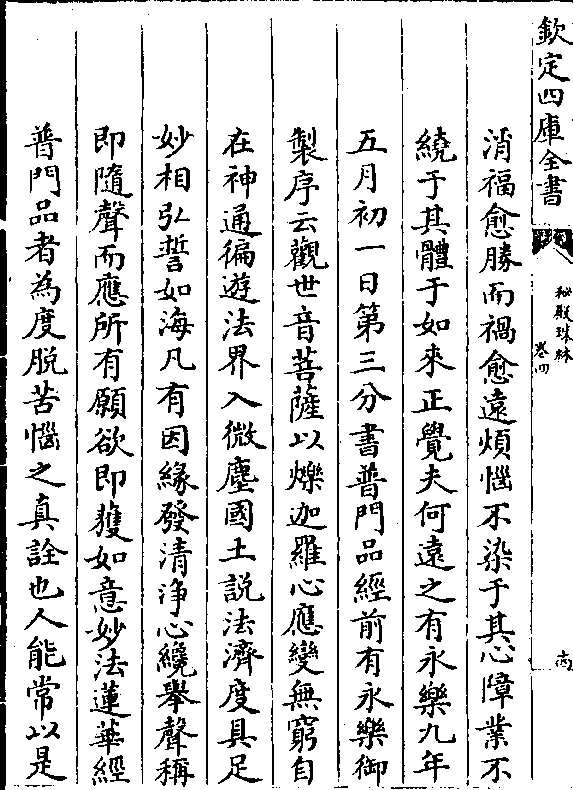 欽定四庫全書
秘殿珠林
卷四
消福愈勝而禍愈遠煩惱不染于其心障業不
繞于其體于如來正覺夫何遠之有永樂九年
五月初一日第三分書普門品經前有永樂御
製序云觀世音菩薩以爍迦羅心應變無窮自
在神通徧遊法界入微塵國土説法濟度具足
妙相弘誓如海凡有因緣發清淨心纔舉聲稱
即隨聲而應所有願欲即獲如意妙法蓮華經
普門品者為度脱苦惱之真詮也人能常以是